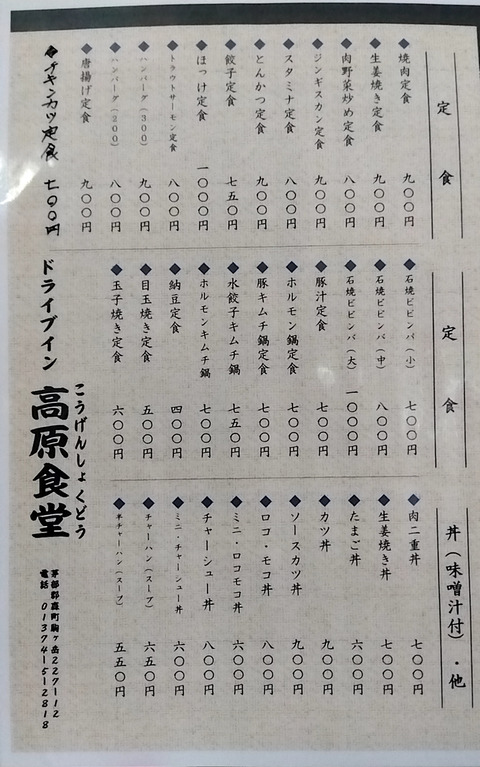 定食
焼肉定食 九〇〇円
生姜焼き定食 九〇〇円
肉野菜炒め定食 八〇〇円
ジンギスカン定食 九〇〇円
スタミナ定食 八〇〇円
とんかつ定食 九〇〇円
餃子定食 七五〇円
ほっけ定食 一〇〇〇円
トラウトサーモン定食 八〇〇円
ハンバーグ(300) 九〇〇円
ハンバーグ(200) 八〇〇円
唐揚げ定食 九〇〇円
チキンカツ定食 七〇〇円
定食
石焼ビビンバ(小) 七〇〇円
石焼ビビンバ(中) 八〇〇円
石焼ビビンバ(大) 一〇〇〇円
豚汁定食 七〇〇円
ホルモン鍋定食 七〇〇円
豚キムチ鍋定食 七〇〇円
水餃子キムチ鍋 七五〇円
ホルモンキムチ鍋 七〇〇円
納豆定食 四〇〇円
目玉焼き定食 五〇〇円
玉子焼き定食 六〇〇円
丼(味噌汁付)・他
肉二重丼 七〇〇円
生姜焼き丼 七〇〇円
たまご丼 六〇〇円
カツ丼 九〇〇円
ソースカツ丼 九〇〇円
ロコ・モコ丼 八〇〇円
ミニ・ロコモコ丼 六〇〇円
チャーシュー丼 八〇〇円
ミニ・チャーシュー丼 六〇〇円
チャーハン(スープ) 六五〇円
半チャーハン(スープ) 五五〇円
ドライブイン
こうげんしょくどう
高原食堂
茅部郡森町駒ヶ岳227-12
電話 01374-5-2818